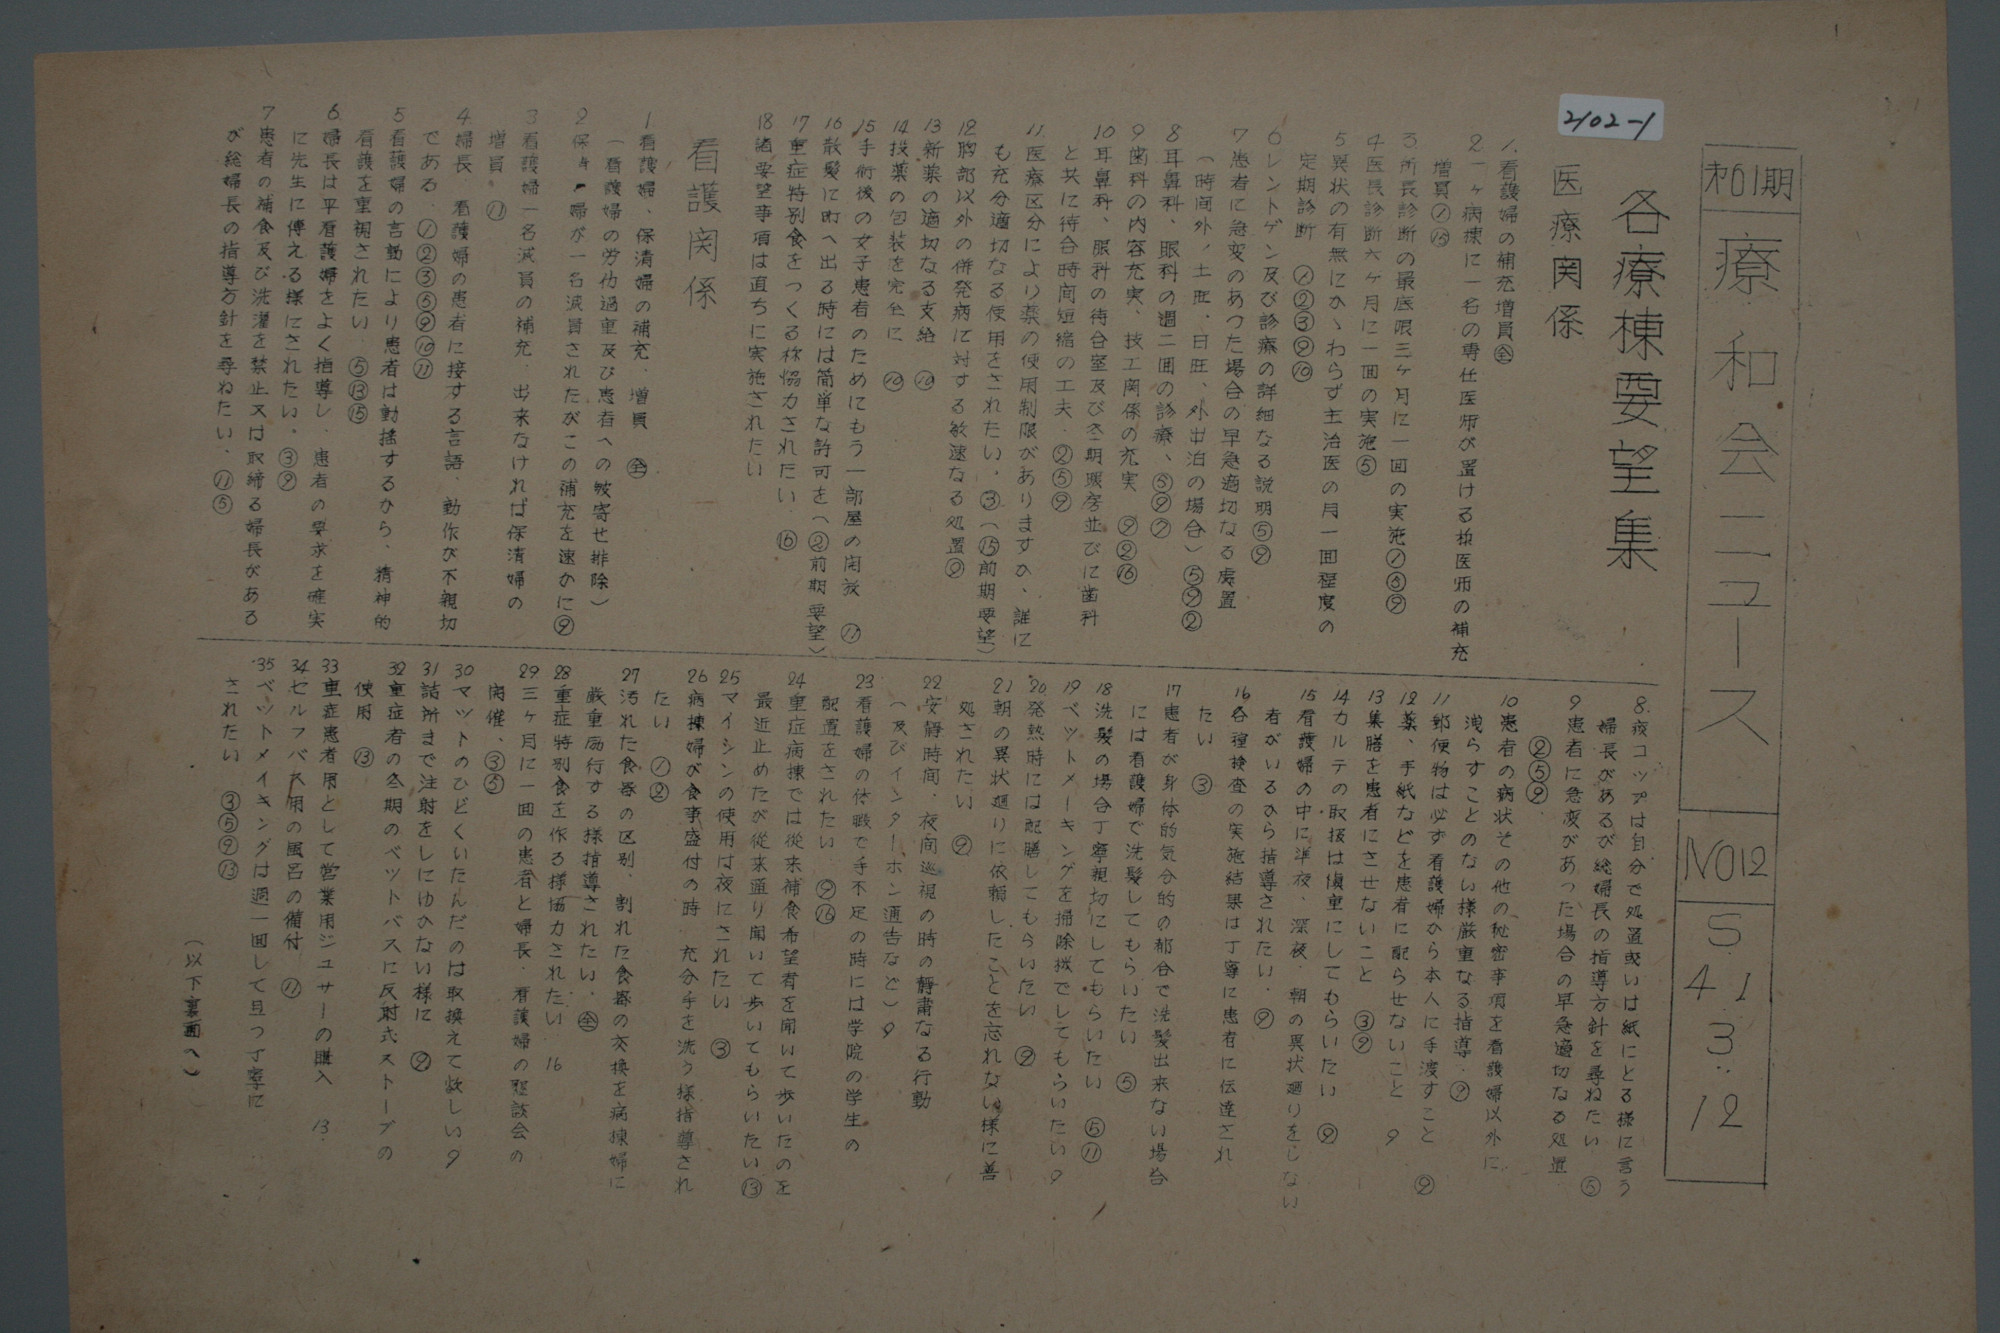 2102-1
和01期
療和会ニュース
NO12
S
41
3:
12
各療棟要望集
医療関係
1.看護婦の補充増員㊎
2一ヶ病棟に一名の専任医师が置ける様医师の補充
増員①⑮
3所長診断の最底限三ヶ月に一囬の実施
4医長診断六ヶ月に一囬の実施⑤
5異状の有無にかゝわらず主治医の月一囬程度の
定期診断 ①②③⑨⑩
6レントゲン及び診療の詳細なる説明⑤⑨
7患者に急変のあった場合の早急適切なる処置
(時间外、土旺、日旺、外出泊の場合)⑤⑨②
8耳鼻科、眼科の週二囬の診療、⑤⑨⑦
9歯科の内容充実、技工関係の充実 ⑨②⑯
10耳鼻科、眼科の待合室及び冬期暖房並びに歯科
と共に待合時间短縮の工夫.②⑤⑨
11.医療区分により薬の使用制限がありますが、誰に
も充分適切なる使用をされたい。③(⑮前期要望)
12胸部以外の併発病に対する敏速なる処置⑨
13新薬の適切なる支給 ⑩
14投薬の包装を完全に ⑩
15手術後の女子患者のためにもう一部屋の開放 ⑪
16散髪に町へ出る時には简単な許可を(②前期要望)
17重症特別食をつくる様協力されたい.⑯
18諸要望事項は直ちに実施されたい
看護関係
1看護婦、保清婦の補充、増員 ㊎
(看護婦の労仂過重及び患者への皺寄せ排除)
2保清婦が一名減員されたがこの補充を速かに⑨
3看護婦一名減員の補充.出来なければ保清婦の
増員 ⑪
4婦長 看護婦の患者に接する言語、動作が不親切
である.①②③⑤⑨⑩⑪
5看護婦の言動により患者は動揺するから、精神的
看護を重視されたい.⑤⑬⑮
6.婦長は平看護婦をよく指導し、患者の要求を確実
に先生に傳える様にされたい。③⑨
7患者の補食及び洗濯を禁止又は取締る婦長がある
が総婦長の指導方針を尋ねたい、⑪⑤
8.痰コップは自分で処置或いは紙にとる様に言う
婦長があるが総婦長の指導方針を尋ねたい ⑤
9患者に急変があった場合の早急適切なる処置
②⑤⑨.
10患者の病状その他の秘密事項を看護婦以外に
洩らすことのない様厳重なる指導.⑦
11郵便物は必ず看護婦から本人に手渡すこと ⑨
12薬、手紙などを患者に配らせないこと 9
13集膳を患者にさせないこと ③⑨
14カルテの取扱は慎重にしてもらいたい ⑨
15看護婦の中に準夜、深夜、朝の異状廻りをしない
者がいるから指導されたい.⑨
16各種検査の実施結果は丁寧に患者に伝達され
たい ③
17患者が身体的気分的の都合で洗髪出来ない場合
には看護婦で洗髪してもらいたい ⑤
18洗髪の場合丁寧親切にしてもらいたい ⑤⑪
19ベットメーキングを掃除機でしてもらいたい9
20発熱時には配膳してもらいたい ⑨
21朝の異状廻りに依頼したことを忘れない様に善
処されたい ⑨
22安静時间、夜间巡視の時の静粛なる行動
(及びインターホン通告など)9
23看護婦の休暇で手不足の時には学院の学生の
配置をされたい ⑨⑯
24重症病棟では従来補食希望者を聞いて歩いたのを
最近止めたが従来通り聞いて歩いてもらいたい⑬
25マイシンの使用は夜にされたい ③
26病棟婦が食事盛付の時 充分手を洗う様指導され
たい ①②
27汚れた食器の区别、割れた食器の交換を病棟婦に
厳重励行する様指導されたい.㊎
28重症特別食を作る様協力されたい 16
29三ヶ月に一囬の患者と婦長、看護婦の懇談会の
開催、③⑤
30マットのひどくいたんだのは取換えて欲しい9
31詰所まで注射をしにゆかない様に ⑨
32重症者の冬期のベットバスに反射式ストーブの
使用 ⑬
33重症患者用として営業用ジュサーの購入 13.
34セルフバス用の風呂の備付 ⑪
35ベットメイキングは週一囬して且つ丁寧に
されたい ③⑤⑨⑬
(以下裏面へ)